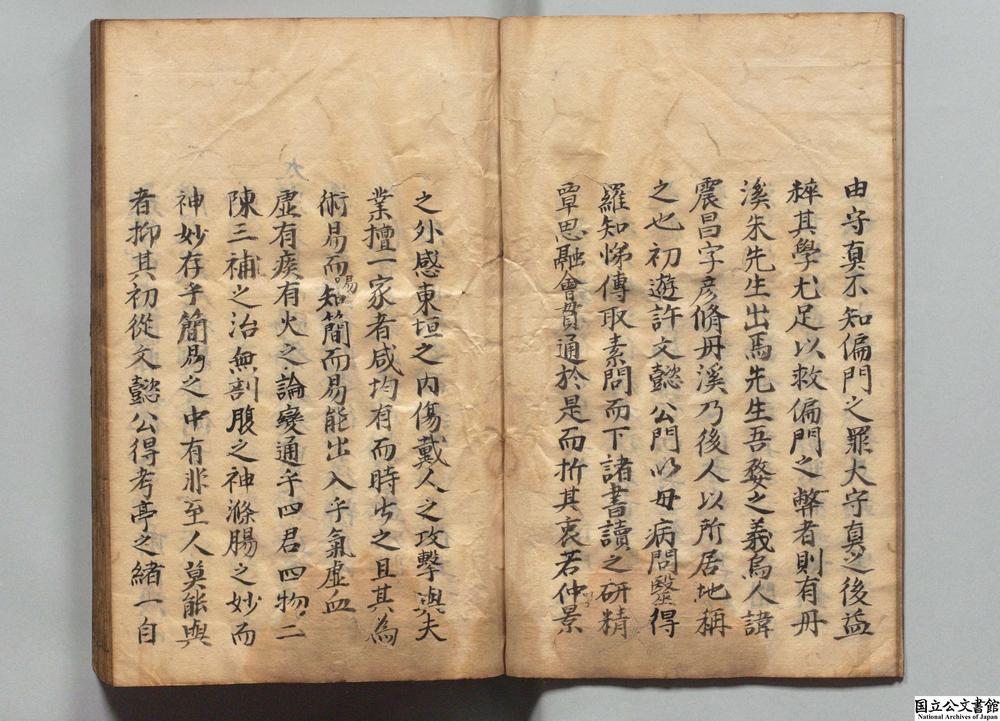 由守真不知偏門之罪大守真之後益
粹其學尤足以救偏門之弊者則有丹
溪朱先生出焉先生吾婺之義烏人諱
震昌字彦脩丹溪乃後人以所居地稱
之也初遊許文懿公門以母病問醫得
羅知悌傳取素問而下諸書讀之研精
覃思融會貫通於是而折其衷若仲景
之外感東垣之内傷戴人之攻擊與夫
業擅一家者咸均有而時出之且其為
術易而易知簡而易能出入乎氣虛血
虛有痰有火之論變通乎四君四物二
陳三補之治無剖腹之神滌腸之妙而
神妙存乎簡易之中有非至人莫能與
者抑其初從文懿公得考亭之緒一自
国立公文書館
National Archives of Japan